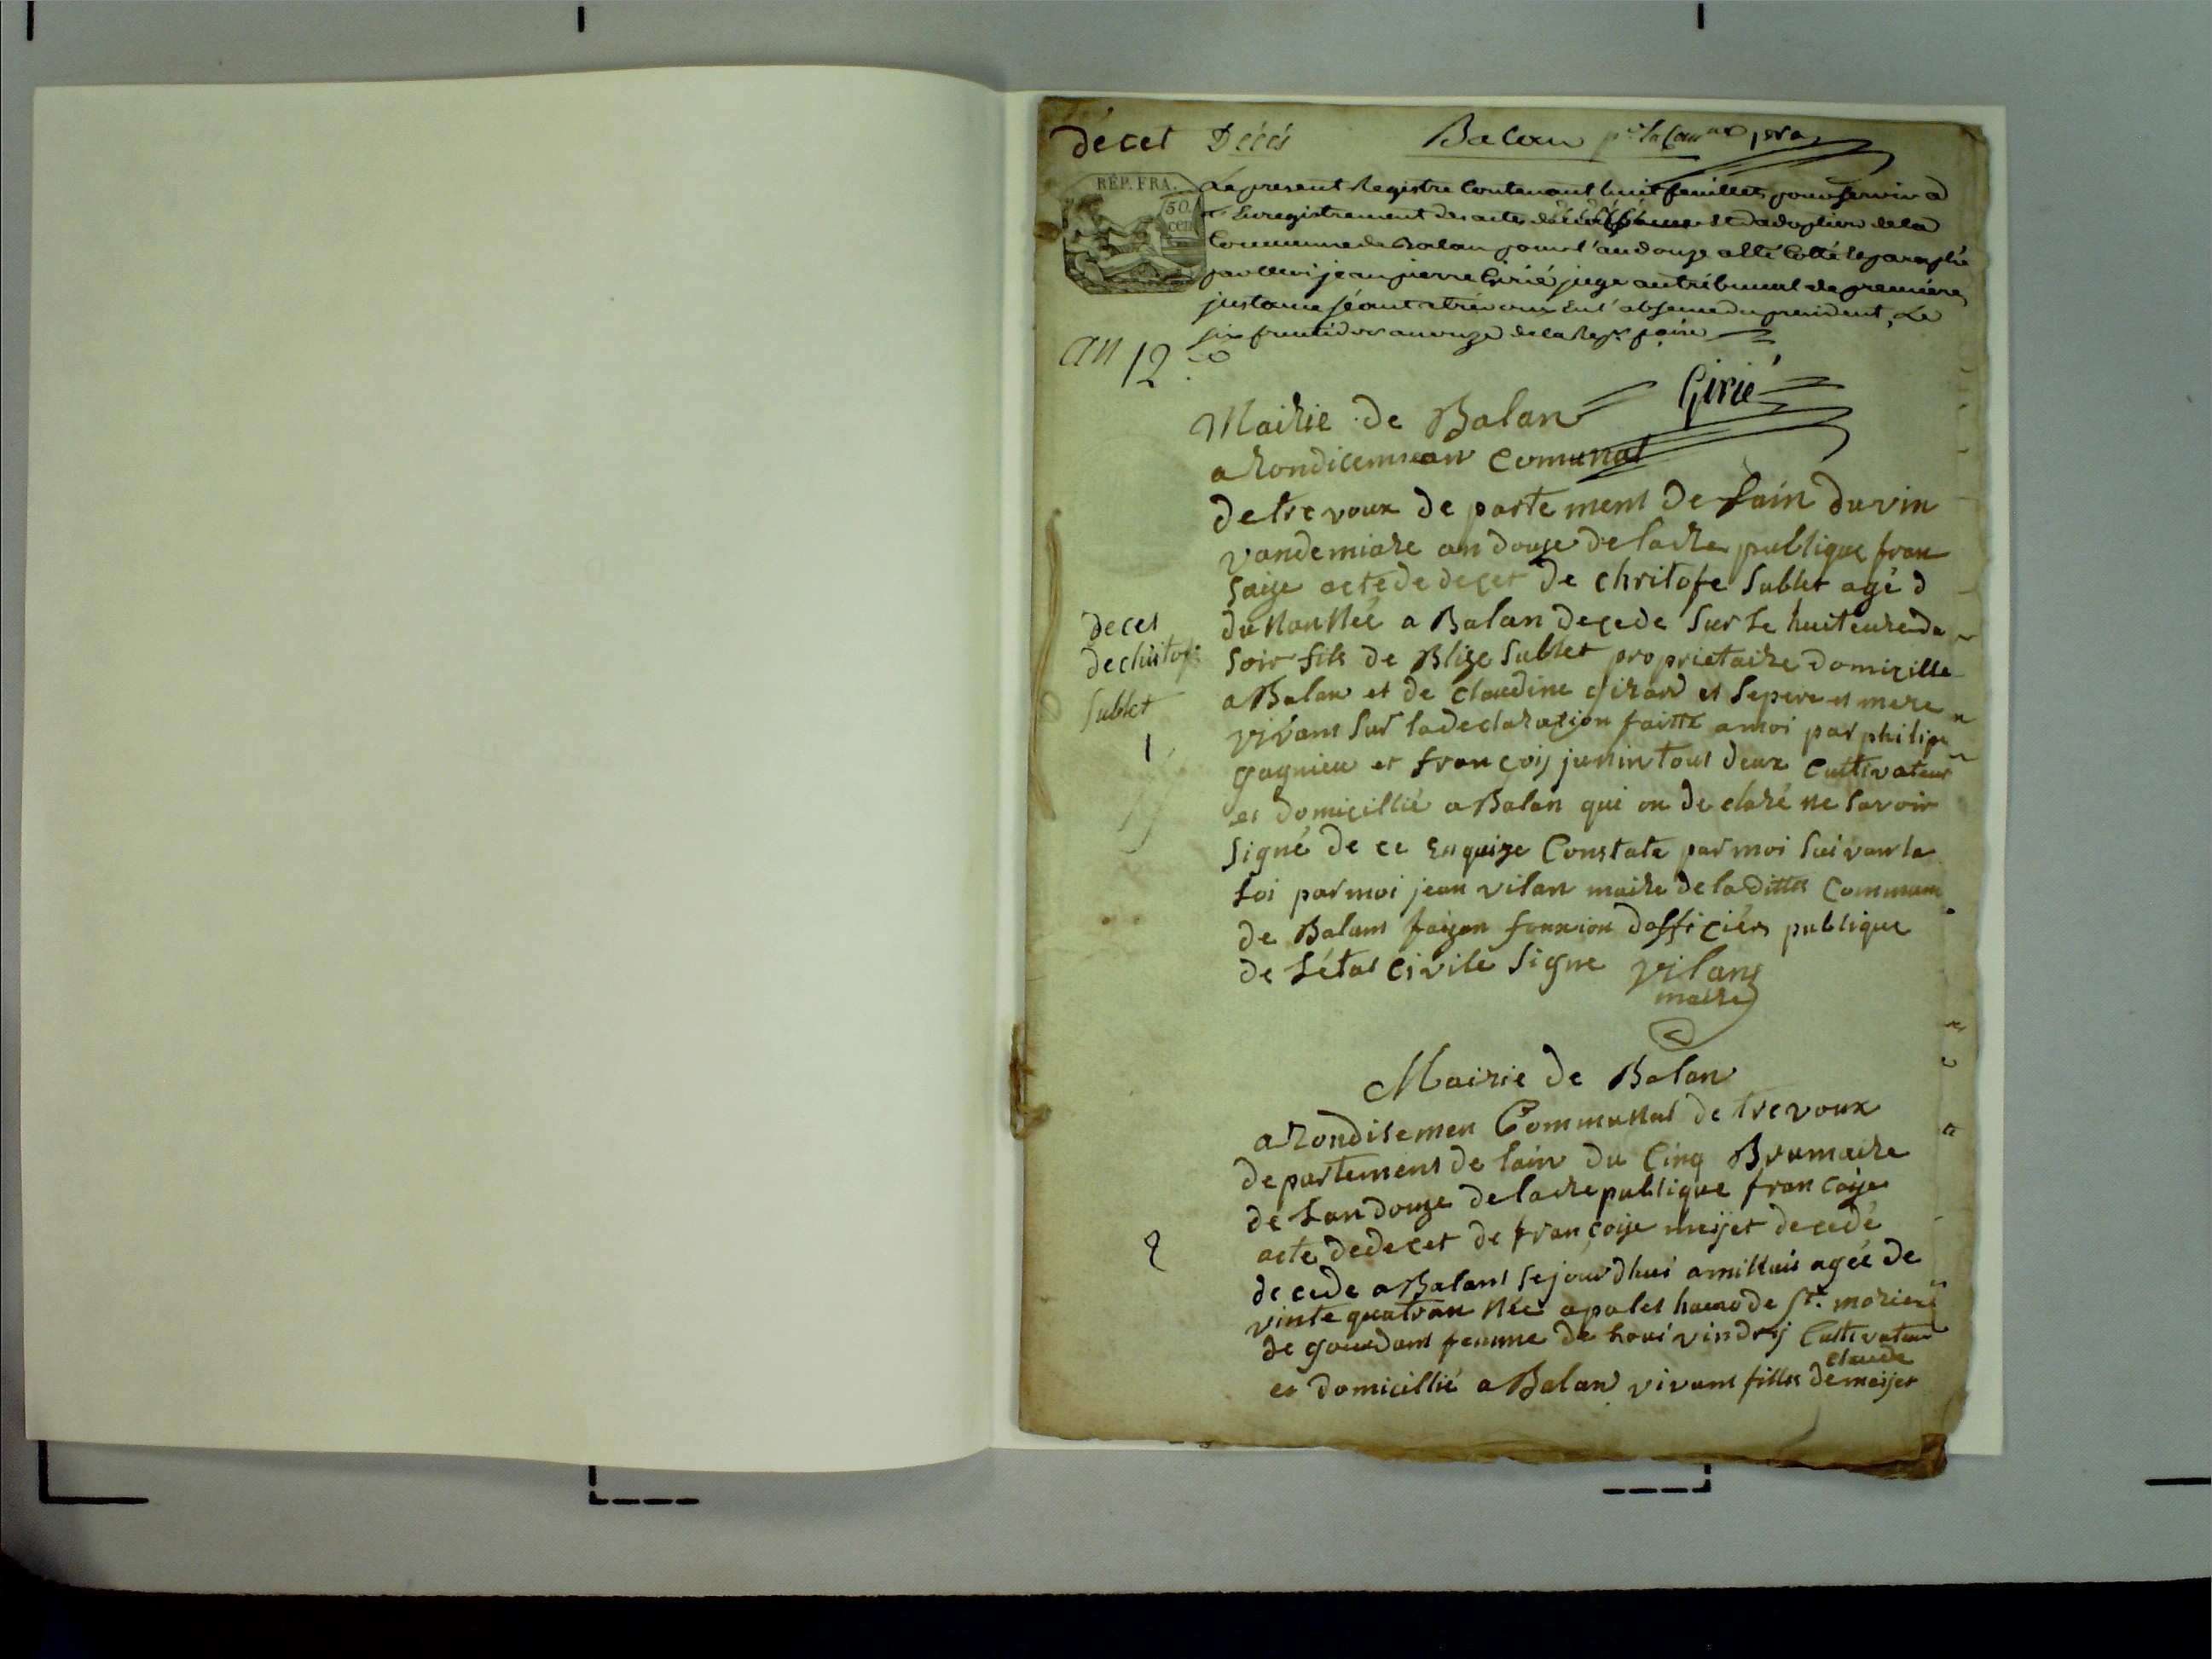 décet Décés Balan
RÉP. FRA.
50. cen
Le present Registre Contenant huit feuillets pour servir a
Enregistrement des actes de décés et d'adoption de la
Commune de Balan pour l'an douze a été Cotté et paraphé
par Nous jean pierre Girié juge au tribunal de premiere
justance séant a trévoux En l'absence du president, Le
six fructidor an onze de la Rep. f.aise
an 12
Girié
Mairie de Balan
a Rondicemean Comunal
de tre voux de parte ment De Lain du vin
vandemiare an douze de la Re publique fran
saize acte de decet De chritofe Sublet agé d
du Nan Née a Balan decede Sur Le huit eure da
Soir fils de Blize Sublet proprietaire domicille
a Balan et de Claudine girard et Se pere et mere
vivans Sur la declaration faitte a moi par philipe
gagnieu et françois justin tous deux Cultivateur
et domicillié a Balan qui on de claré ne Savoir
Signé de ce En quize Constate par moi Suivan la
Loi par moi jean vilan maire de la ditte Commune
de Balans faizan fonxion d officiér publique
de L état Civile Signe vilans
maire
deces
de chritof
Sublet
1
Mairie de Balan
a Rondisemen Communal de trevoux
departement de Lain du Cinq Brumaire
de Lan douze de la Republique françoise
acte de decet de françoise meijet decedé
decede a Balans Se jourdhui a mi Nuis agée de
vinte quatr an Née a palet hamo de St. moriere
de gourdans femme de Loui vindrij Cultivateur
claude
et domicillié a Balan vivans fille de meijet
2